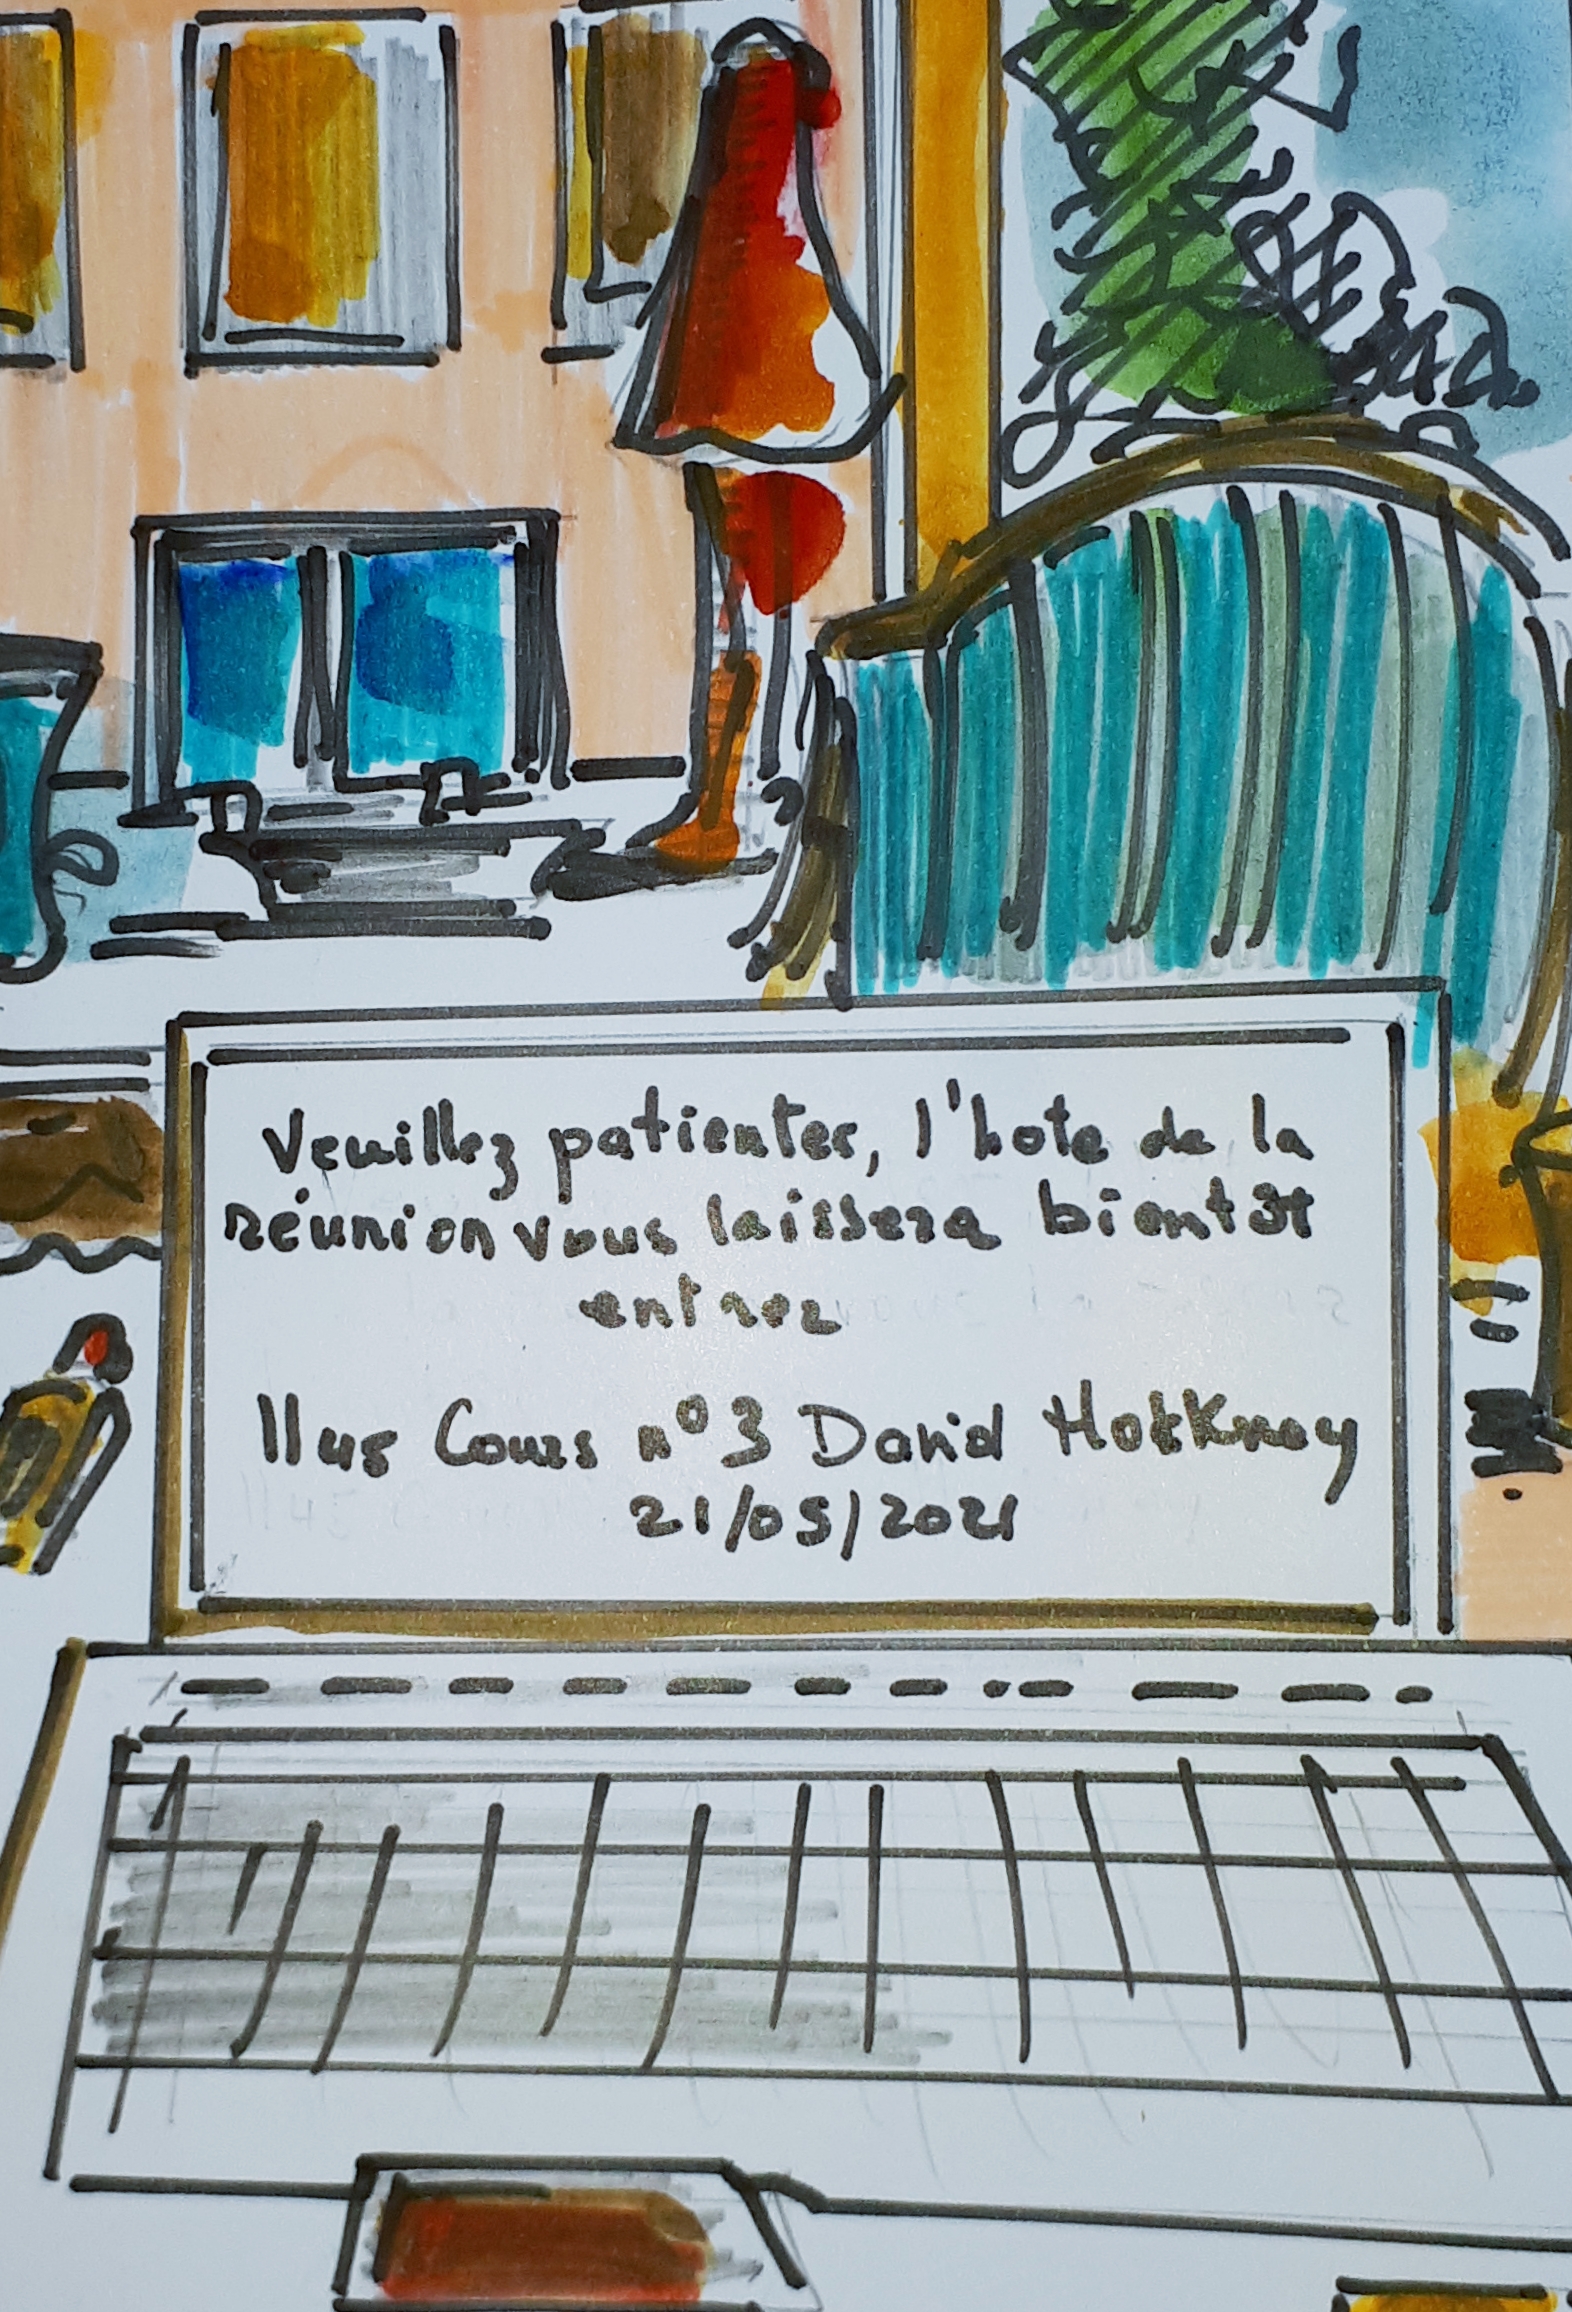 Veuillez patienter, l'hote de la
réunion vous laissera bientôt
entrer
11h45 Cours n°3 David Hotkney
21/05/2021